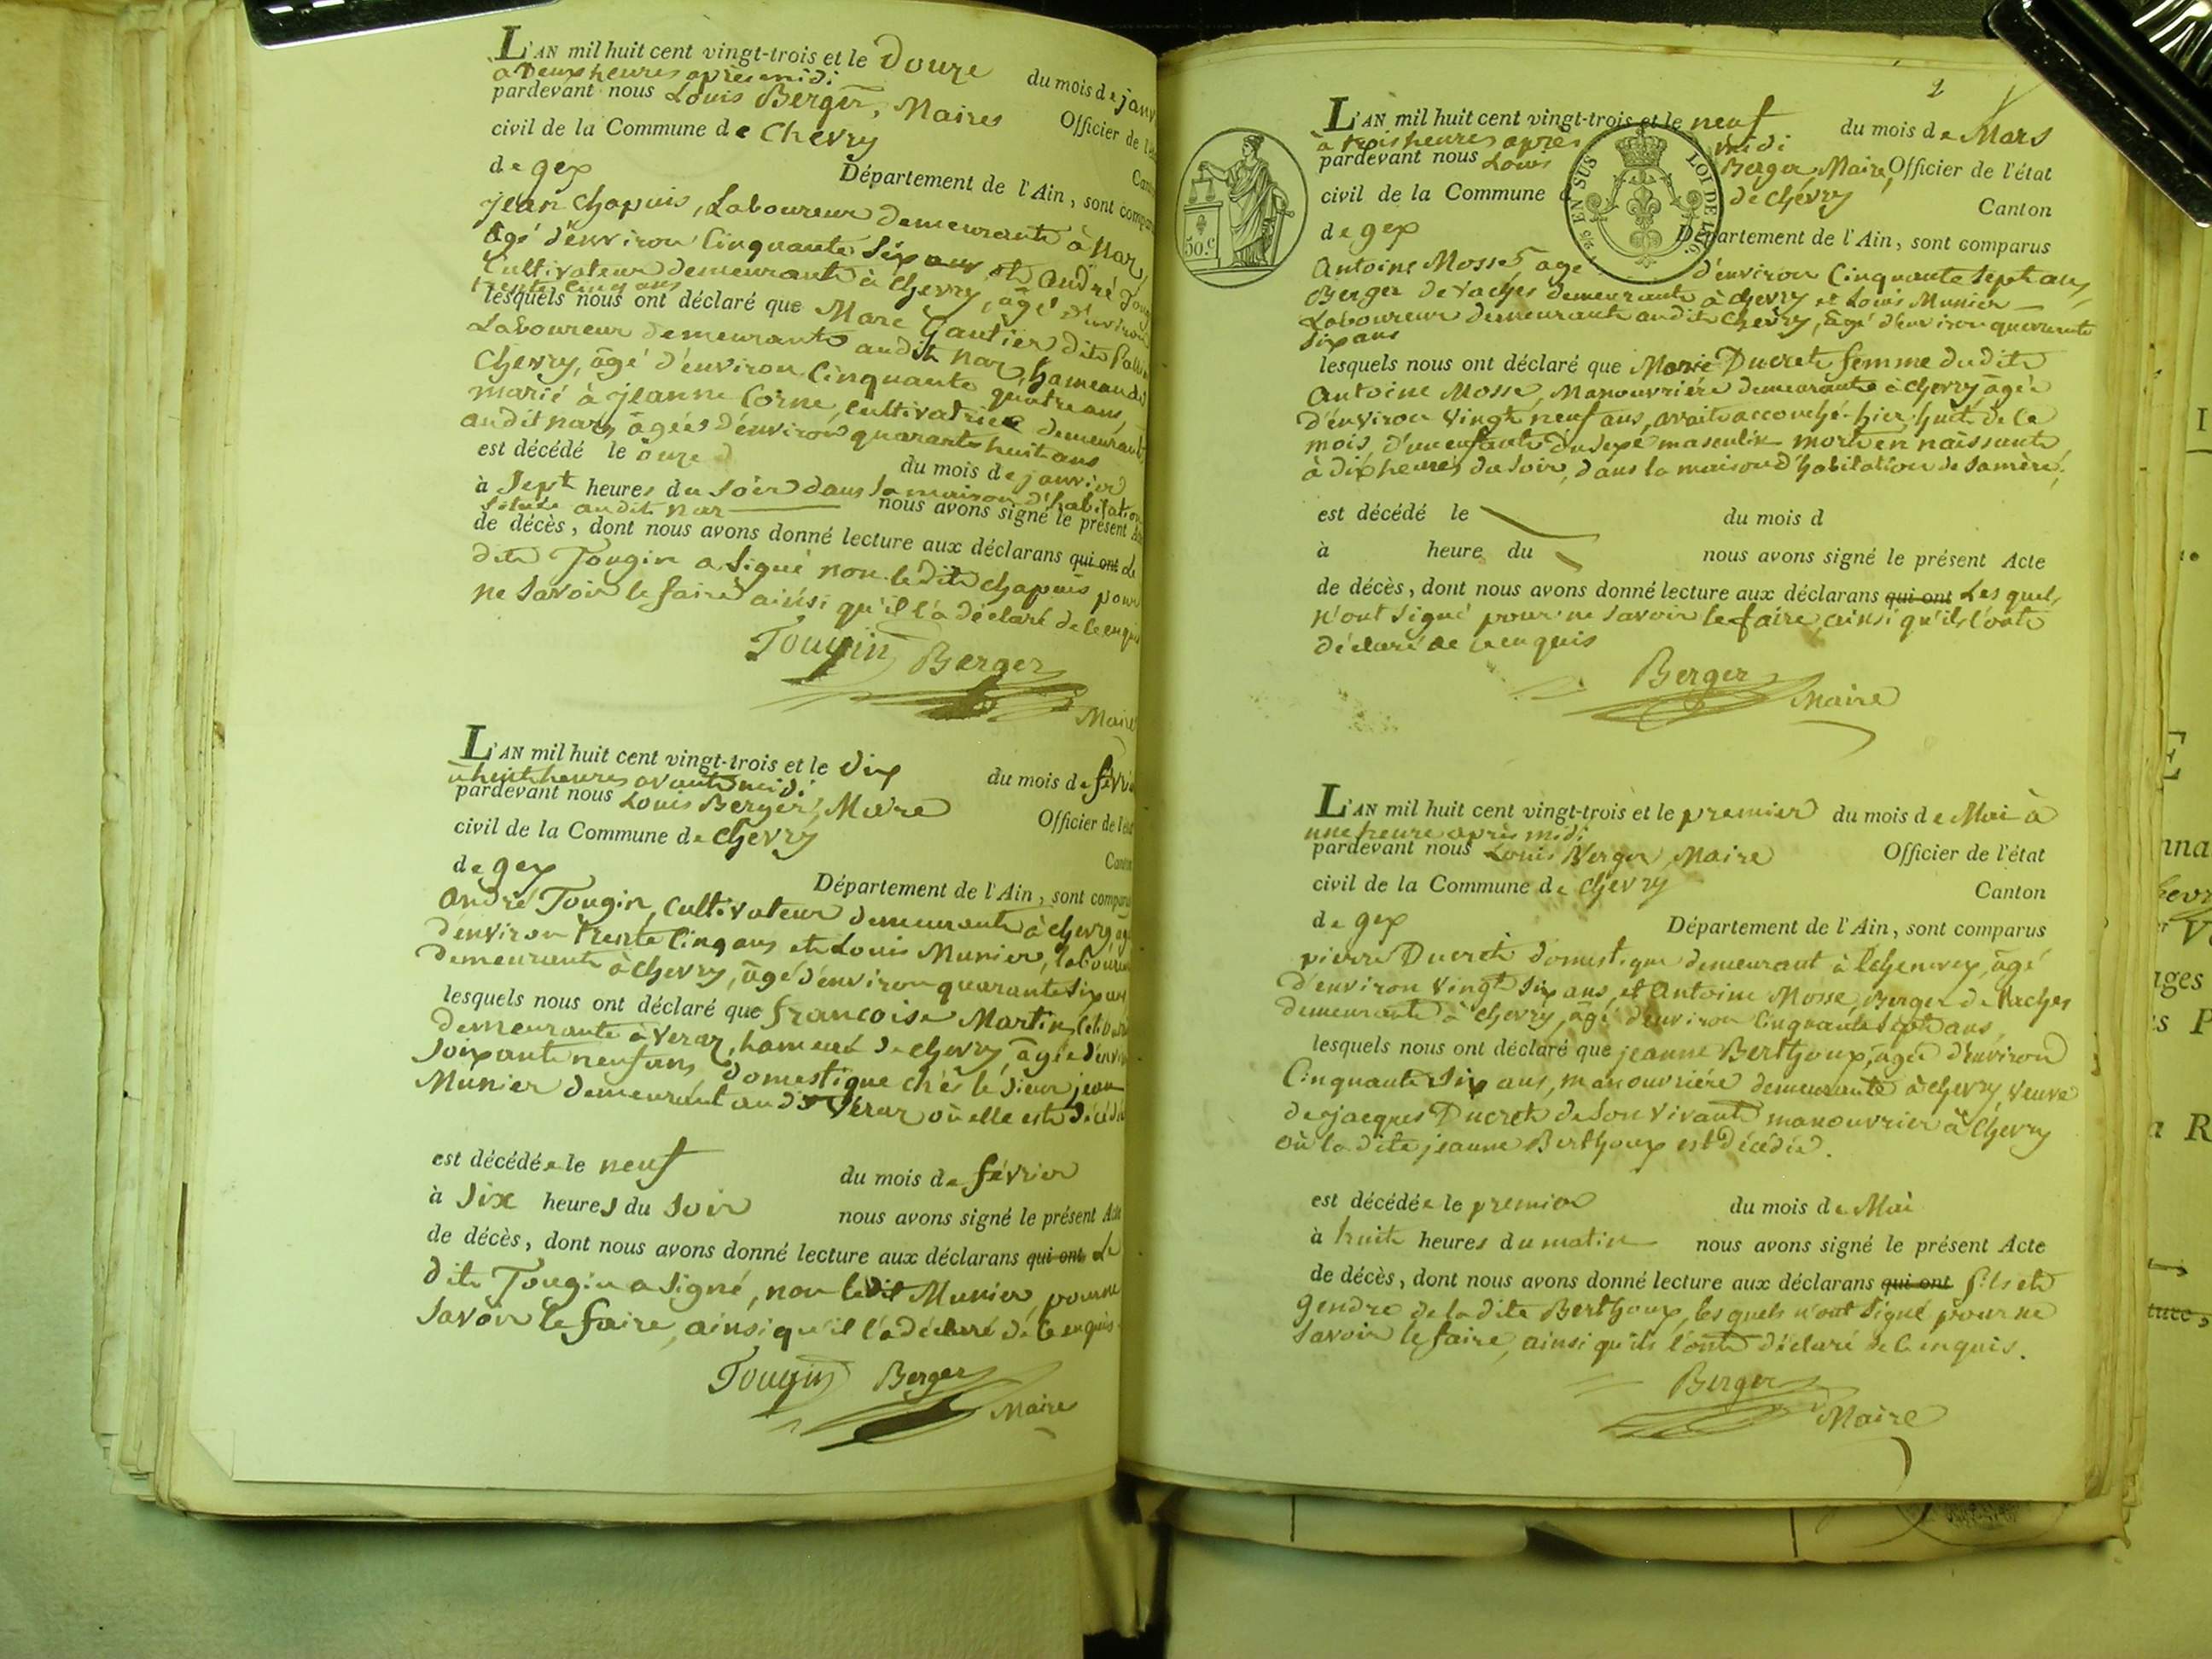 L'AN mil huit cent vingt-trois et le Douze du mois de janv
a Deux heures après midi
pardevant nous Louis Berger, Maires Officier de l'é
civil de la Commune de Chevry Can
de gex Département de l'Ain, sont compa
jean Chapuis, Laboureur demeurante à Nar,
âgé d'environ Cinquante Six ans et André Toug
Cultivateur demeurante à Chevry, âgé d'environ
trente cinq ans
lesquels nous ont déclaré que Marc Gautier dit
Laboureur demeurante audit Nar, hameau de
Chevry, âgé d'environ Cinquante quatre ans,
marié à jeanne Corne, cultivatrice demeurant
audit Nar, âgée d'environ quarante huit ans
est décédé le onze du mois de janvier
à Sept heures du Soir dans la maison d'habitation
située audit Nar nous avons signé le présent A
de décès, dont nous avons donné lecture aux déclarans qui ont Le
dit Tougin a Signé non ledit Chapuis pour
ne Savoir le faire ainsi qu'il l'a déclaré de ce enquis
Tougin Berger
Maire
L'AN mil huit cent vingt-trois et le Dix du mois de févri
à huit heures avant midi
pardevant nous Louis Berger, Maire Officier de l'éta
civil de la Commune de Chevry Canton
de gex Département de l'Ain, sont compar
André Tougin, Cultivateur demeurante à Chevry, âgé
d'environ trente Cinq ans et Louis Munier, laboureur
demeurante à Chevry, âgé d'environ quarante Six ans
lesquels nous ont déclaré que françoise Martin,
demeurante à Veraz, hameau de Chevry, âgée d'environ
Soixante neuf ans, domestique chés le Sieur jean
Munier demeurant audit Véraz où elle est décédée
est décédée le neuf du mois de février
à Six heures du Soir nous avons signé le présent Acte
de décès, dont nous avons donné lecture aux déclarans qui ont Le
dit Tougin a Signé, non ledit Munier, pour ne
Savoir le faire, ainsi qu'il l'a déclaré de ce enquis
Tougin Berger
Maire
2
L'AN mil huit cent vingt-trois et le neuf du mois de Mars
à trois heures après midi
pardevant nous Louis Berger, Maire, Officier de l'état
civil de la Commune de Chevry Canton
de gex Département de l'Ain, sont comparus
50.c
EN SUS LOI DE 1816.
Antoine Mosse, âgé d'environ Cinquante Sept ans,
Berger de Vaches demeurante à Chevry et Louis Munier
Laboureur demeurante audit Chevry, âgé d'environ quarante
Six ans
lesquels nous ont déclaré que Marie Ducret femme dudit
Antoine Mosse, Manouvriére demeurante à Chevry, âgée
d'environ Vingt neuf ans, avait accouché hier, huit de ce
mois, d'un enfant du sexe masculin mort en naissante
à dix heures du Soir, dans la maison d'habitation de Sa mère,
est décédé le du mois d
à heure du nous avons signé le présent Acte
de décès, dont nous avons donné lecture aux déclarans qui ont Les quels
n'ont Signé pour ne Savoir le faire, ainsi qu'ils l'ont
déclaré de ce enquis
Berger
Maire
L'AN mil huit cent vingt-trois et le premier du mois de Mai à
une heure après midi
pardevant nous Louis Berger, Maire Officier de l'état
civil de la Commune de Chevry Canton
de gex Département de l'Ain, sont comparus
pierre Ducret domestique demeurant à Echenevex, âgé
d'environ Vingt Six ans, et Antoine Mosse, Berger de Vaches
demeurante à Chevry, âgé d'environ Cinquante Sept ans,
lesquels nous ont déclaré que jeanne Berthoux, âgée d'environ
Cinquante Six ans, manouvriére demeurante à Chevry, Veuve
de jacques Ducret de Son Vivant manouvrier à Chevry
où la dite jeanne Berthoux est décédée.
est décédée le premier du mois de Mai
à huit heures du matin nous avons signé le présent Acte
de décès, dont nous avons donné lecture aux déclarans qui ont fils et
Gendre de la dite Berthoux, les quels n'ont Signé pour ne
Savoir le faire, ainsi qu'ils l'ont déclaré de ce enquis.
Berger
Maire